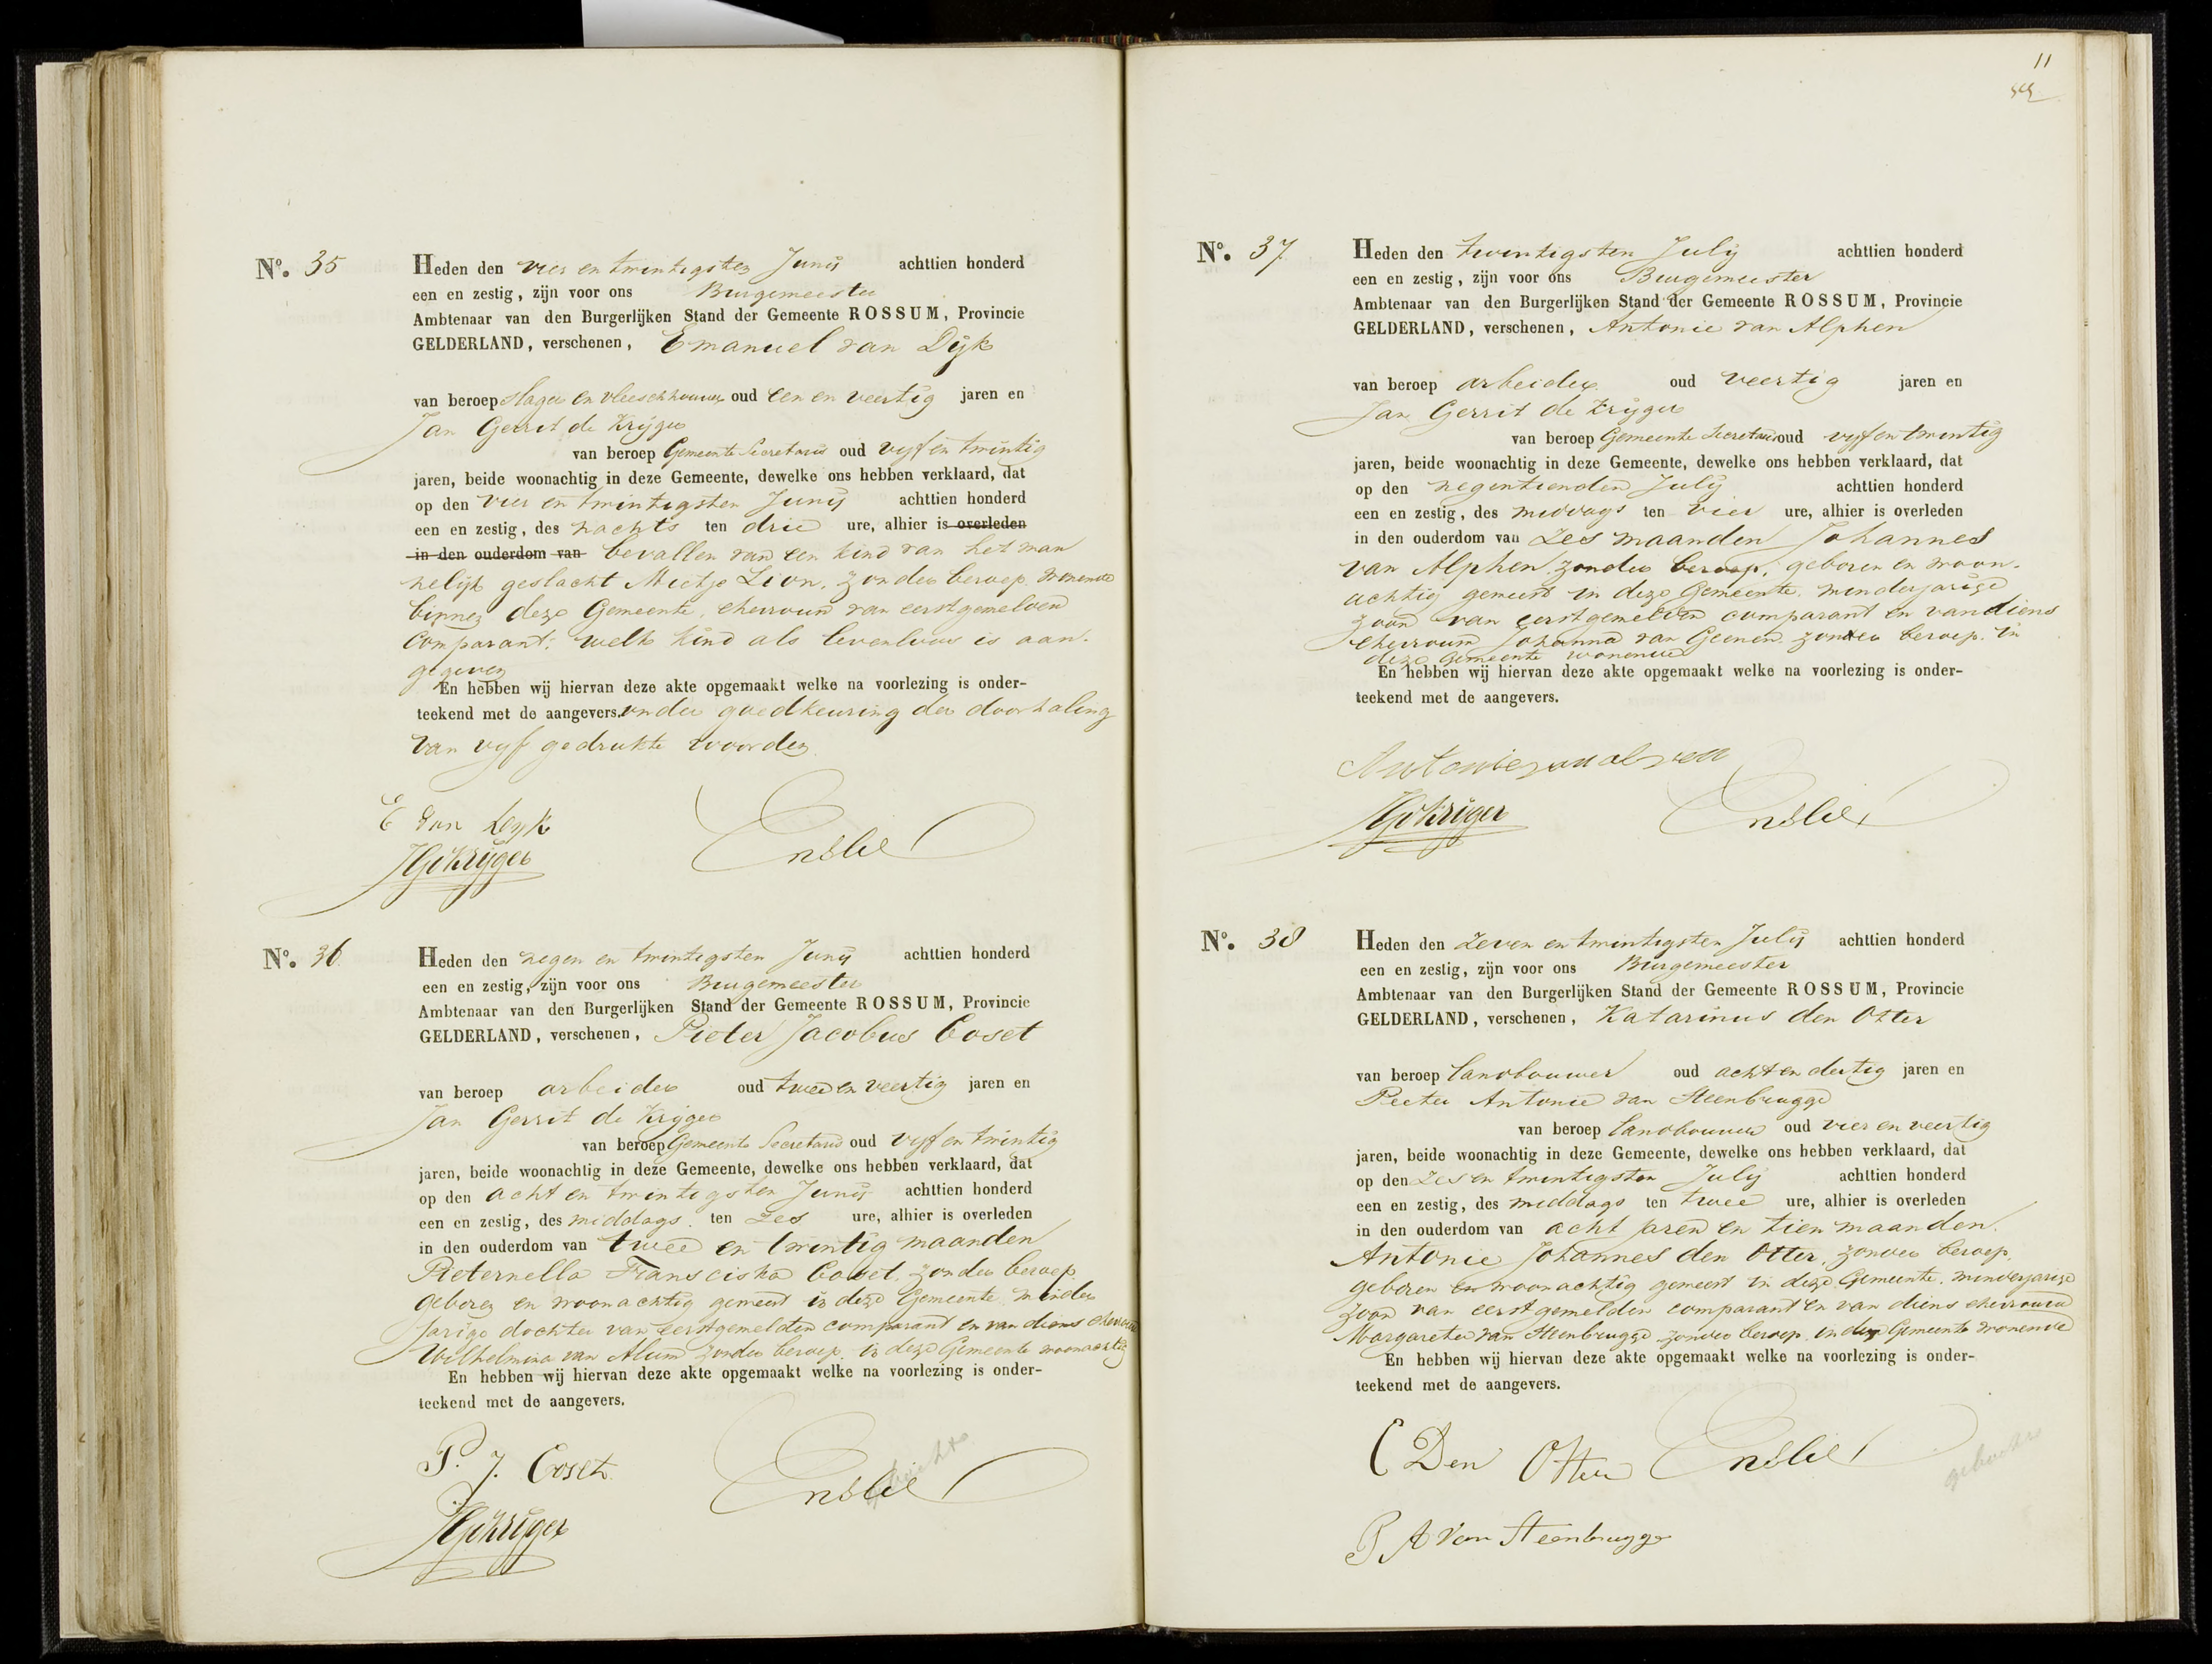 Nº. 35
Heden den vier en twintigsten Junij achttien honderd
een en zestig, zijn voor ons Burgemeester
Ambtenaar van den Burgerlijken Stand der Gemeente ROSSUM, Provincie
GELDERLAND, verschenen, Emanuel van Dijk
van beroep slager en vleeschhouwer oud een en veertig jaren en
Jan Gerrit de Krijger
van beroep Gemeente Secretaris oud vijf en twintig
jaren, beide woonachtig in deze Gemeente, dewelke ons hebben verklaard, dat
op den vier en twintigsten Junij achttien honderd
een en zestig, des nachts ten drie ure, alhier is overleden
in den ouderdom van bevallen van een kind van het man
nelijk geslacht Mietje Lion, zonder beroep, wonende
binnen deze Gemeente, ehevrouw van eerstgemelden
Comparant; welk kind als levenloos is aan-
gegeven
En hebben wij hiervan deze akte opgemaakt welke na voorlezing is onder-
teekend met de aangevers. onder goedkeuring der doorhaling
van vijf gedrukte woorden.
E van Deyk
JGdKrijger Enslie
Nº. 36
Heden den negen en twintigsten Junij achttien honderd
een en zestig, zijn voor ons Burgemeester
Ambtenaar van den Burgerlijken Stand der Gemeente ROSSUM, Provincie
GELDERLAND, verschenen, Pieter Jacobus Coset
van beroep arbeider oud twee en veertig jaren en
Jan Gerrit de Krijger
van beroep Gemeente Secretaris oud vijf en twintig
jaren, beide woonachtig in deze Gemeente, dewelke ons hebben verklaard, dat
op den acht en twintigsten Junij achttien honderd
een en zestig, des middags ten zes ure, alhier is overleden
in den ouderdom van twee en twintig maanden
Pieternella Franciska Coset, zonder beroep
geboren en woonachtig geweest in deze Gemeente minder
jarige dochter van eerstgemelden comparant en van diens ehevrouw
Wilhelmina van Alum zonder beroep in deze Gemeente woonachtig
En hebben wij hiervan deze akte opgemaakt welke na voorlezing is onder-
teekend met de aangevers.
P. J. Coset
Enslie
JGdKrijger
11
Nº. 37
Heden den twintigsten Julij achttien honderd
een en zestig, zijn voor ons Burgemeester
Ambtenaar van den Burgerlijken Stand der Gemeente ROSSUM, Provincie
GELDERLAND, verschenen, Antonie van Alphen
van beroep arbeider oud veertig jaren en
Jan Gerrit de Krijger
van beroep Gemeente Secretaris oud vijf en twintig
jaren, beide woonachtig in deze Gemeente, dewelke ons hebben verklaard, dat
op den negentienden Julij achttien honderd
een en zestig, des middags ten vier ure, alhier is overleden
in den ouderdom van zes maanden Johannes
van Alphen, zonder beroep, geboren en woon-
achtig geweest in deze Gemeente, minderjarige
zoon van eerstgemelden comparant en van diens
ehevrouw Johanna van Geenen, zonder beroep, in
deze Gemeente wonende
En hebben wij hiervan deze akte opgemaakt welke na voorlezing is onder-
teekend met de aangevers.
Antonie van alpen
JGdKrijger Enslie
Nº. 38
Heden den zeven en twintigsten Julij achttien honderd
een en zestig, zijn voor ons Burgemeester
Ambtenaar van den Burgerlijken Stand der Gemeente ROSSUM, Provincie
GELDERLAND, verschenen, Katarinus den Otter
van beroep landbouwer oud acht en dertig jaren en
Pieter Antonie van Steenbrugge
van beroep landbouwer oud vier en veertig
jaren, beide woonachtig in deze Gemeente, dewelke ons hebben verklaard, dat
op den zes en twintigsten Julij achttien honderd
een en zestig, des middags ten twee ure, alhier is overleden
in den ouderdom van acht jaren en tien maanden.
Antonie Johannes den Otter, zonder beroep,
geboren en woonachtig geweest in deze Gemeente, minderjarige
zoon van eerstgemelden comparant en van diens ehevrouw
Margareta van Steenbrugge zonder beroep, in deze Gemeente wonende
En hebben wij hiervan deze akte opgemaakt welke na voorlezing is onder-
teekend met de aangevers.
C Den Otter Enslie
P A van Steenbrugge